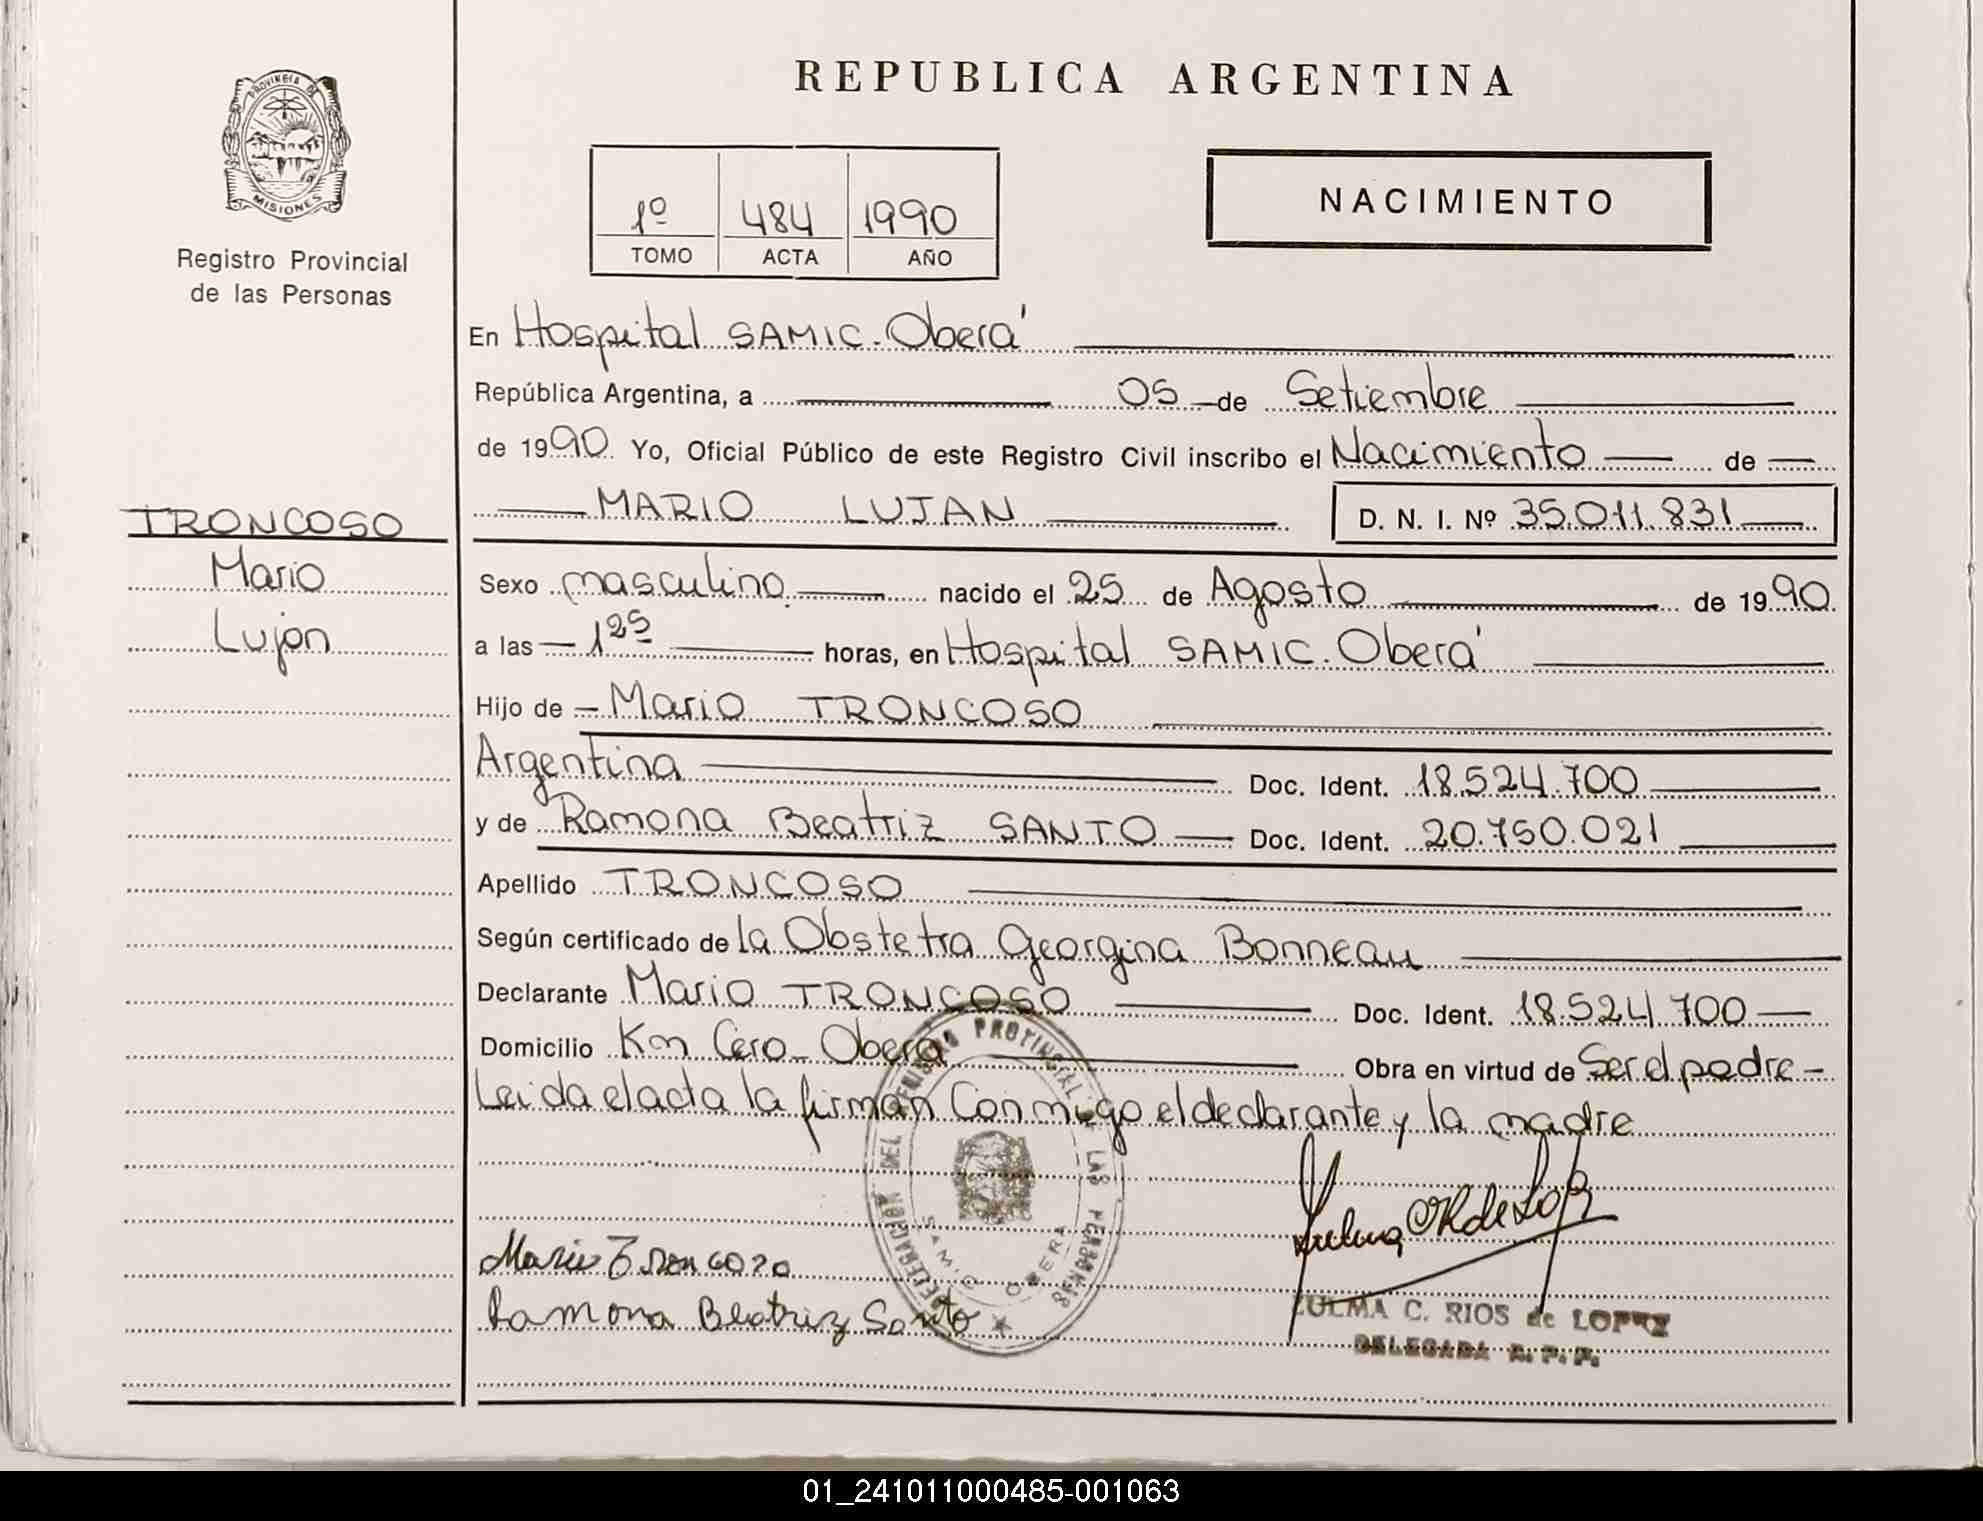 PROVINCIA DE
MISIONES
Registro Provincial
de las Personas
TRONCOSO
Mario
Lujan
REPUBLICA ARGENTINA
1º 484 1990
TOMO ACTA AÑO
NACIMIENTO
En Hospital SAMIC. Oberá
República Argentina, a 05 de Setiembre
de 1990 Yo, Oficial Público de este Registro Civil inscribo el Nacimiento de
MARIO LUJAN D. N. I. Nº 35.011.831
Sexo masculino nacido el 25 de Agosto de 1990
a las 1 25 horas, en Hospital SAMIC. Oberá
Hijo de Mario TRONCOSO
Argentina Doc. Ident. 18.524.700
y de Ramona Beatriz SANTO Doc. Ident. 20.750.021
Apellido TRONCOSO
Según certificado de la Obstetra Georgina Bonneau
Declarante Mario TRONCOSO Doc. Ident. 18.524.700
Domicilio Km Cero - Oberá Obra en virtud de Ser el padre -
Leida el acta la firman Conmigo el declarante y la madre
DELEGACION DEL REGISTRO PROVINCIAL DE LAS PERSONAS
SAMIC OBERA
Mario Troncozo
Ramona Beatriz Santo
ZULMA C. RIOS de LOPEZ
DELEGADA R. P. P.
01_241011000485-001063